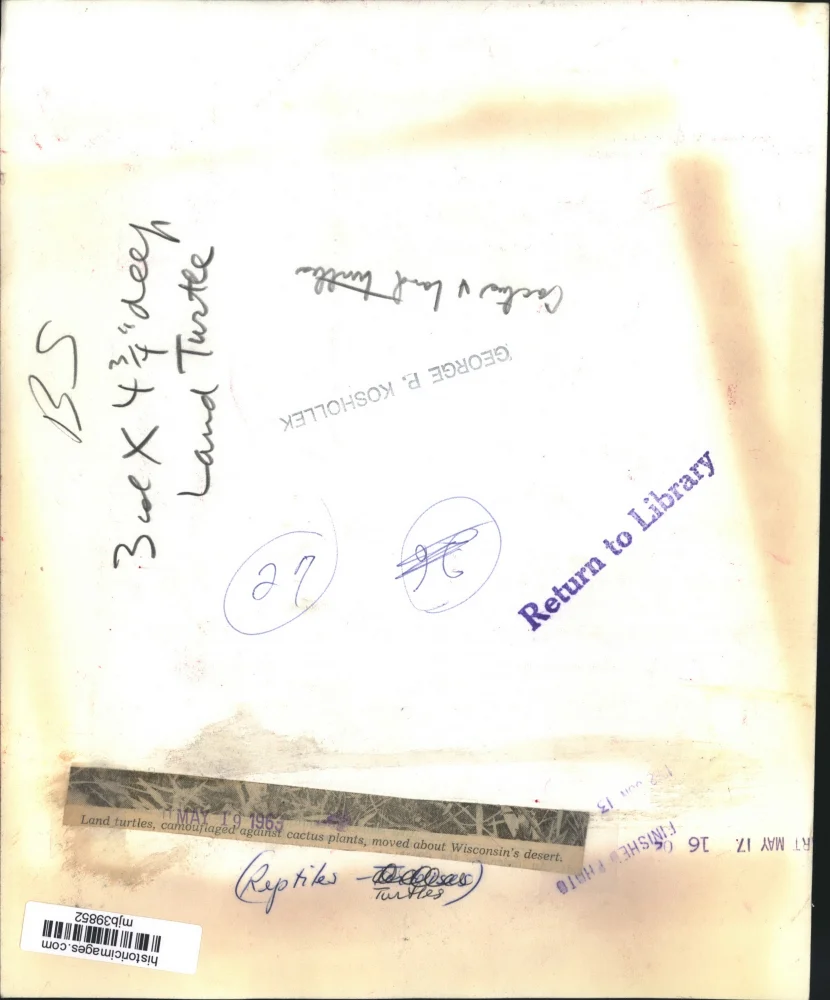 BS
3 col X 4 3/4" deep
Land Turtle
Cactus & land turtles
GEORGE P. KOSHOLLEK
27
26
Return to Library
MAY 19 1963
Land turtles, camouflaged against cactus plants, moved about Wisconsin's desert.
(Reptiles -
Turtles)
FINISHED PHOTO
RT MAY 17. 16
historicimages.com
mjb39852